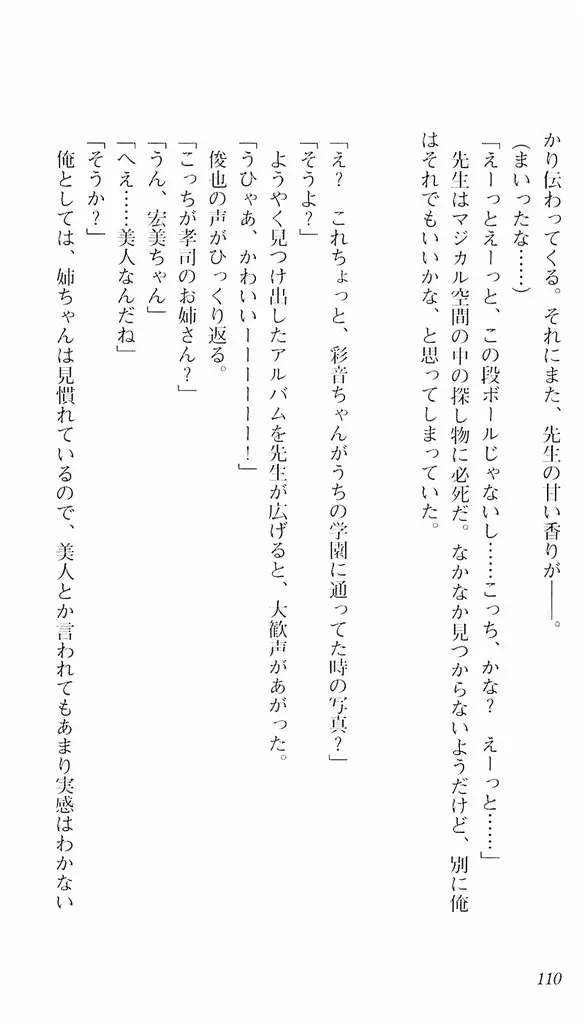 かり伝わってくる。それにまた、先生の甘い香りが――。
(まいったな……)
「えーっとえーっと、この段ボールじゃないし……こっち、かな？　えーっと……」
　先生はマジカル空間の中の探し物に必死だ。なかなか見つからないようだけど、別に俺
はそれでもいいかな、と思ってしまっていた。
「え？　これちょっと、彩音ちゃんがうちの学園に通ってた時の写真？」
「そうよ？」
　ようやく見つけ出したアルバムを先生が広げると、大歓声があがった。
「うひゃあ、かわいいーーーーーー！」
　俊也の声がひっくり返る。
「こっちが孝司のお姉さん？」
「うん、宏美ちゃん」
「へえ……美人なんだね」
「そうか？」
　俺としては、姉ちゃんは見慣れているので、美人とか言われてもあまり実感はわかない
110